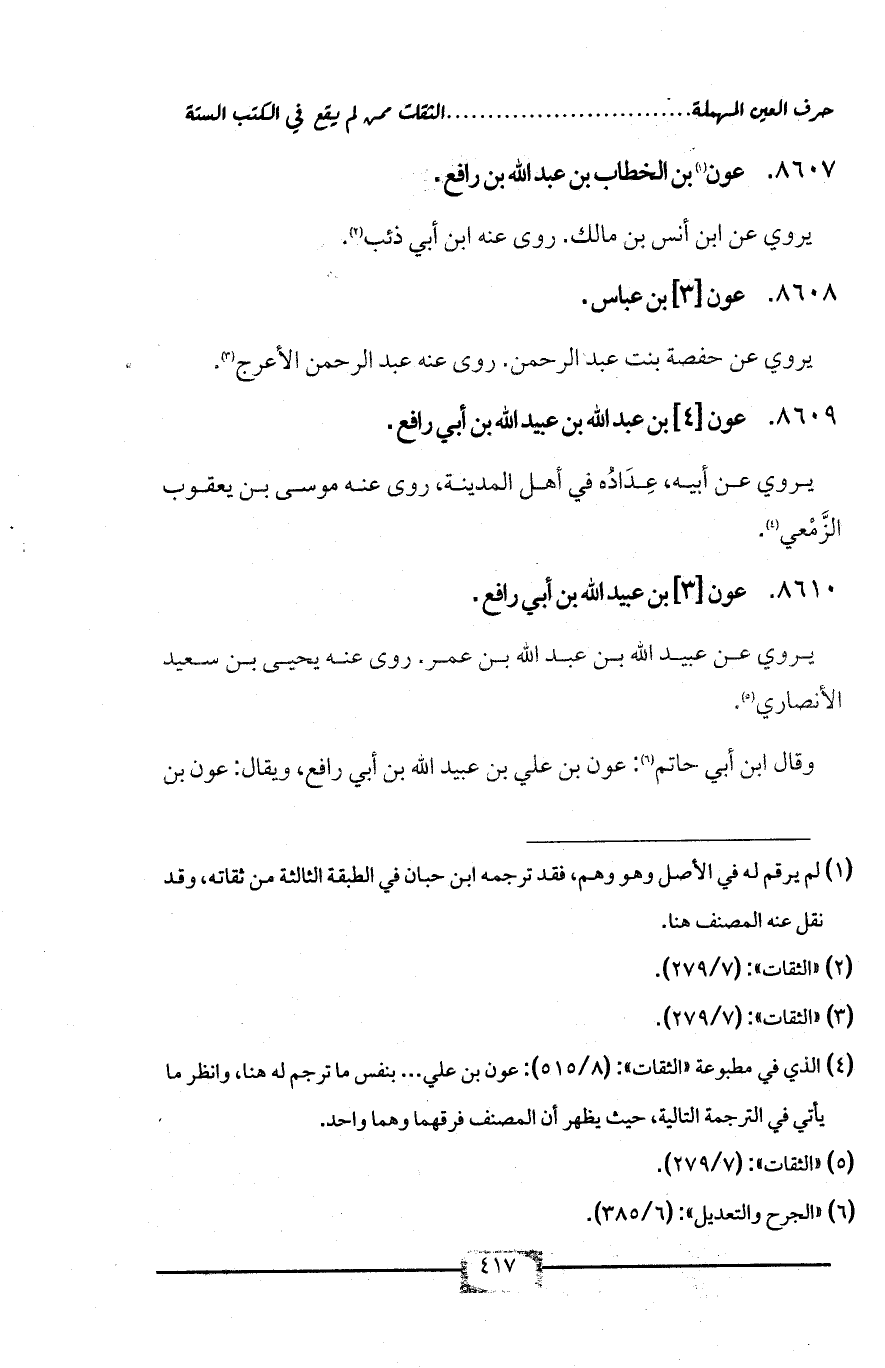 حرف العين المهملة..............................الثقات ممن لم يقع في الكتب الستة
٨٦٠٧. عون(١) بن الخطاب بن عبد الله بن رافع.
يروي عن ابن أنس بن مالك. روى عنه ابن أبي ذئب(٢).
٨٦٠٨. عون [٣] بن عباس.
يروي عن حفصة بنت عبد الرحمن. روى عنه عبد الرحمن الأعرج(٣).
٨٦٠٩. عون [٤] بن عبد الله بن عبيد الله بن أبي رافع.
يروي عن أبيه، عِدَادُه في أهل المدينة، روى عنه موسى بن يعقوب
الزَّمْعي(٤).
٨٦١٠. عون [٣] بن عبيد الله بن أبي رافع.
يروي عن عبيد الله بن عبد الله بن عمر. روى عنه يحيى بن سعيد
الأنصاري(٥).
وقال ابن أبي حاتم(٦): عون بن علي بن عبيد الله بن أبي رافع، ويقال: عون بن
(١) لم يرقم له في الأصل وهو وهم، فقد ترجمه ابن حبان في الطبقة الثالثة من ثقاته، وقد
نقل عنه المصنف هنا.
(٢) «الثقات»: (٢٧٩/٧).
(٣) «الثقات»: (٢٧٩/٧).
(٤) الذي في مطبوعة «الثقات»: (٥١٥/٨): عون بن علي... بنفس ما ترجم له هنا، وانظر ما
يأتي في الترجمة التالية، حيث يظهر أن المصنف فرقهما وهما واحد.
(٥) «الثقات»: (٢٧٩/٧).
(٦) «الجرح والتعديل»: (٣٨٥/٦).
٤١٧